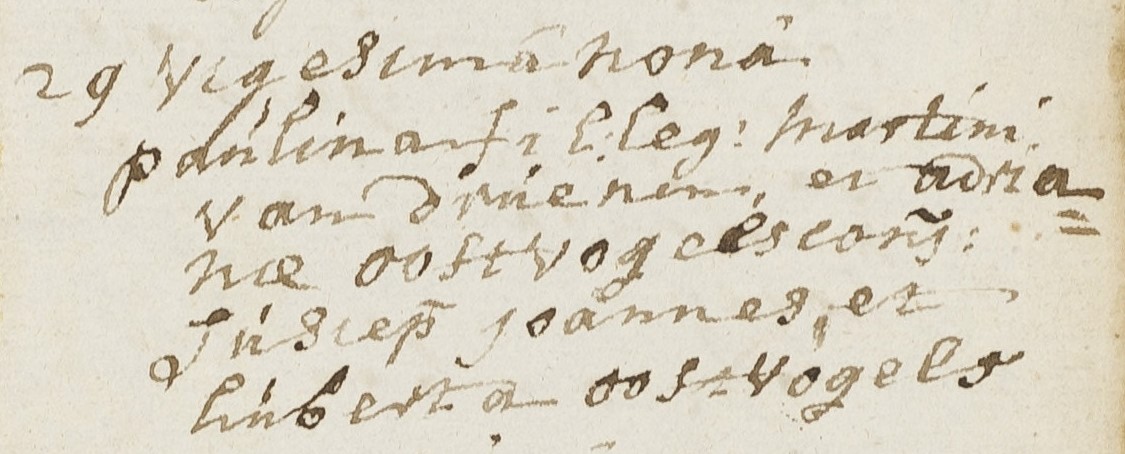 29 Vigesimâ nonâ
paúlina fil: leg: Martini
van drúenen, et adria=
næ oostvogels conj:
Súscep joannes, et
húberta oostvogels